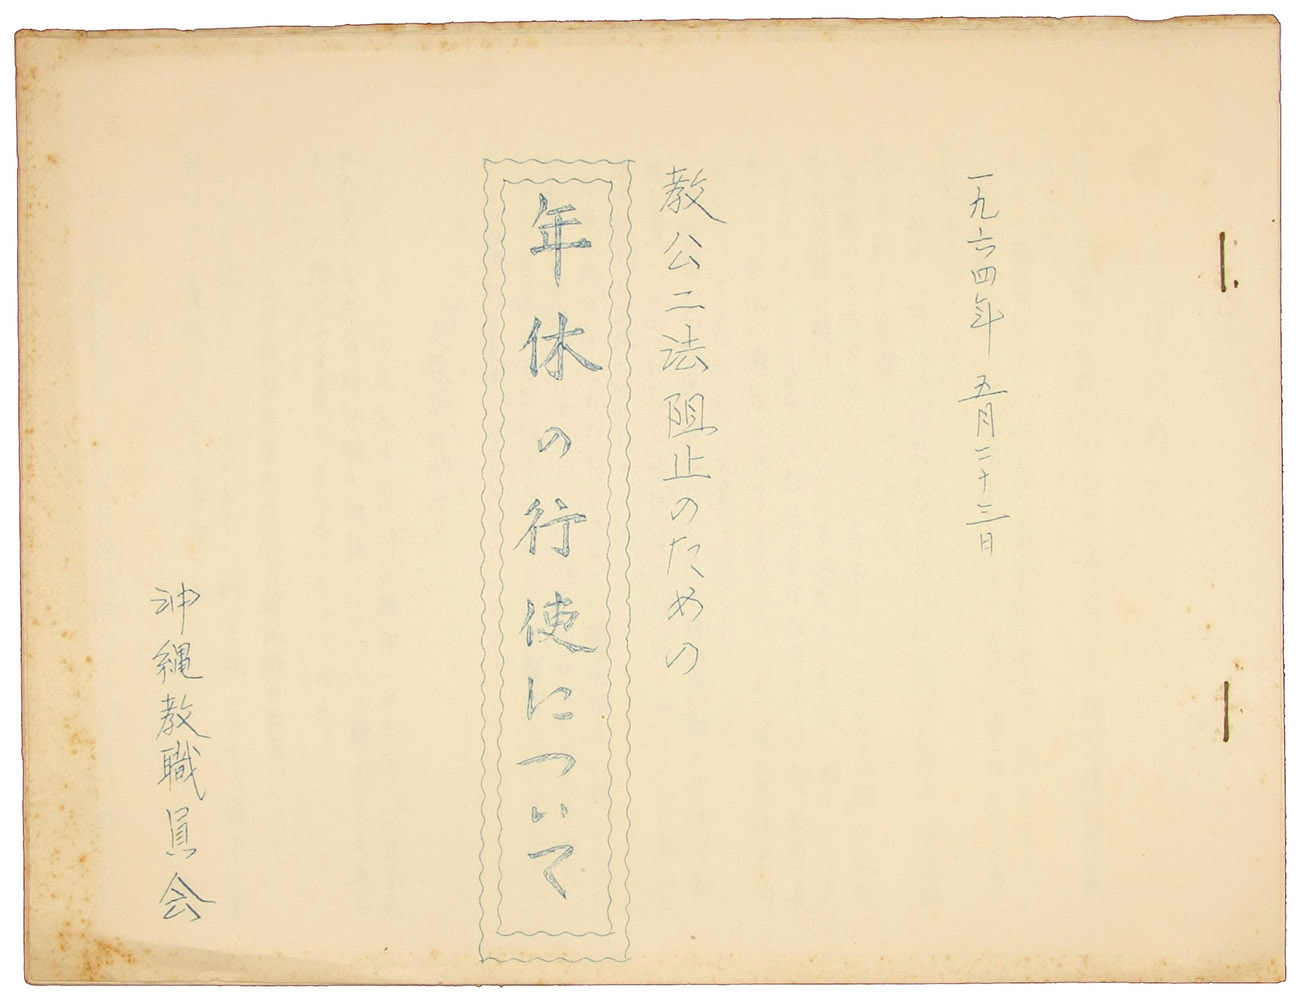 一九六四年 五月二十三日
教公二法阻止のための
年休の行使について
沖縄教職員会